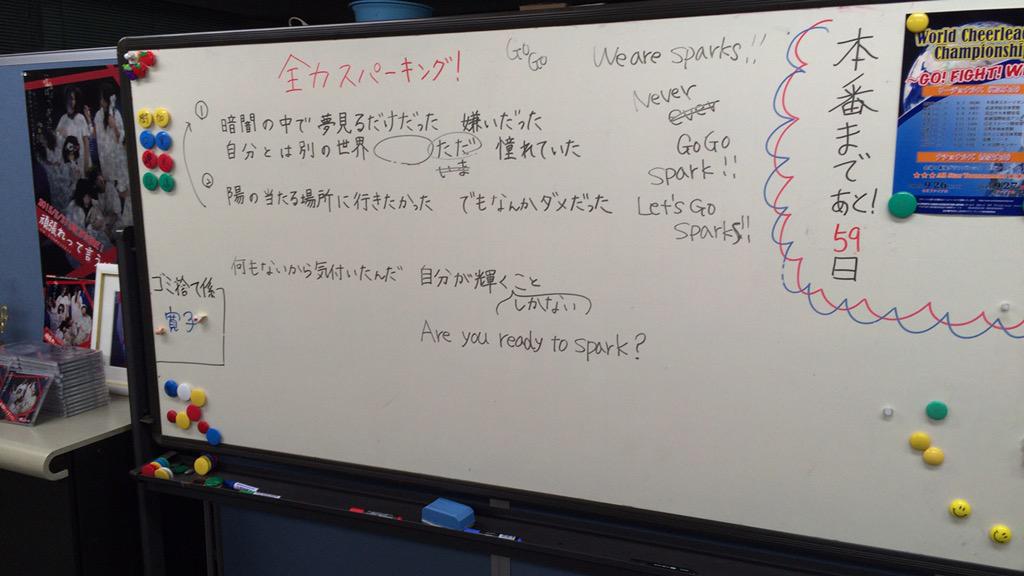 全力スパーキング!
GoGo
We are sparks!!
① 暗闇の中で 夢見るだけだった 嫌いだった
自分とは別の世界 ただ 憧れていた
いま
② 陽の当たる場所に行きたかった でもなんかダメだった
何もないから気付いたんだ 自分が輝くこと
しかない
Are you ready to spark?
Never
ever
GoGo
spark!!
Let's Go
sparks!!
本番まであと!
59
日
ゴミ捨て係
寛子
World Cheerlea
Championshi
GO! FIGHT! W
9.26
頑張れって言う